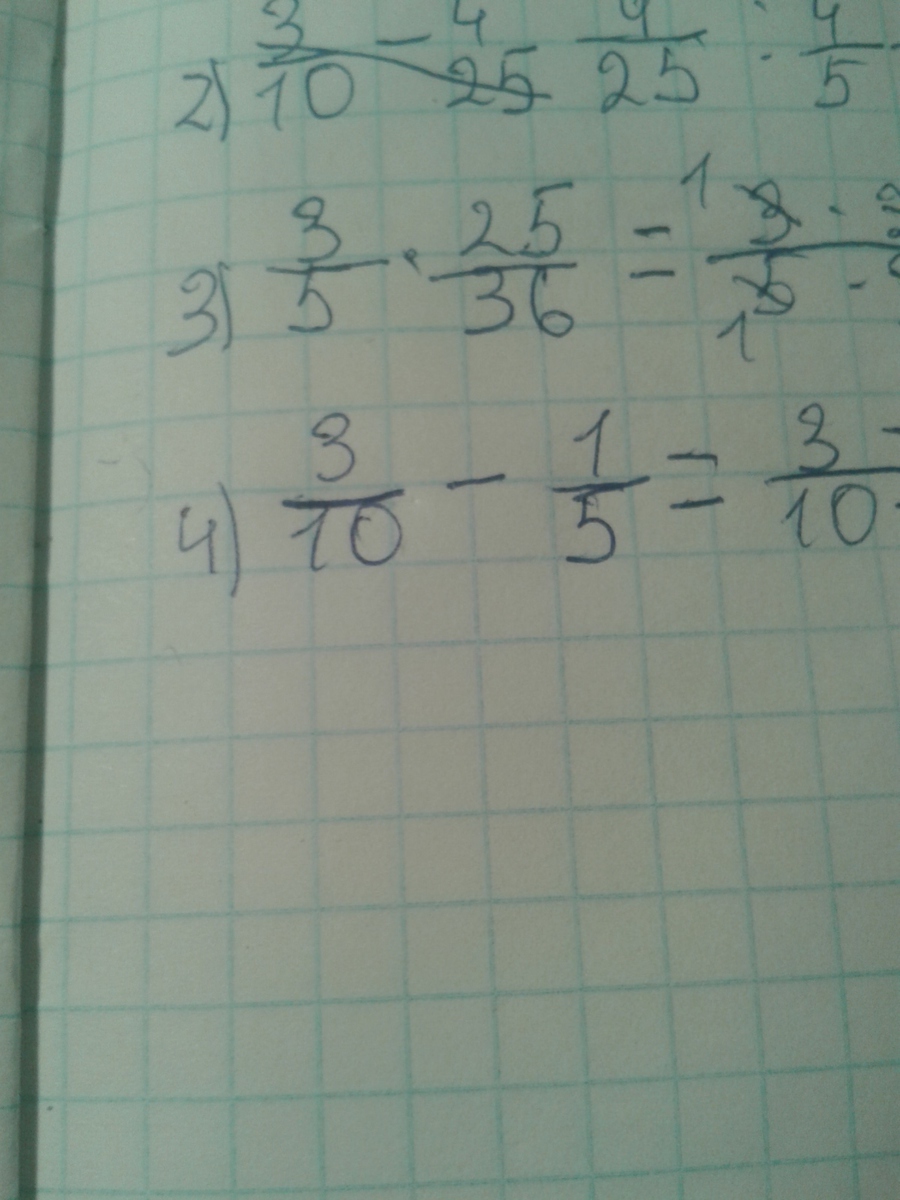 2) 3/10 - 4/25 4/25 : 4/5
3) 3/5 · 25/36 = 1 3 · / 5 · 1
4) 3/10 - 1/5 = 3 - / 10